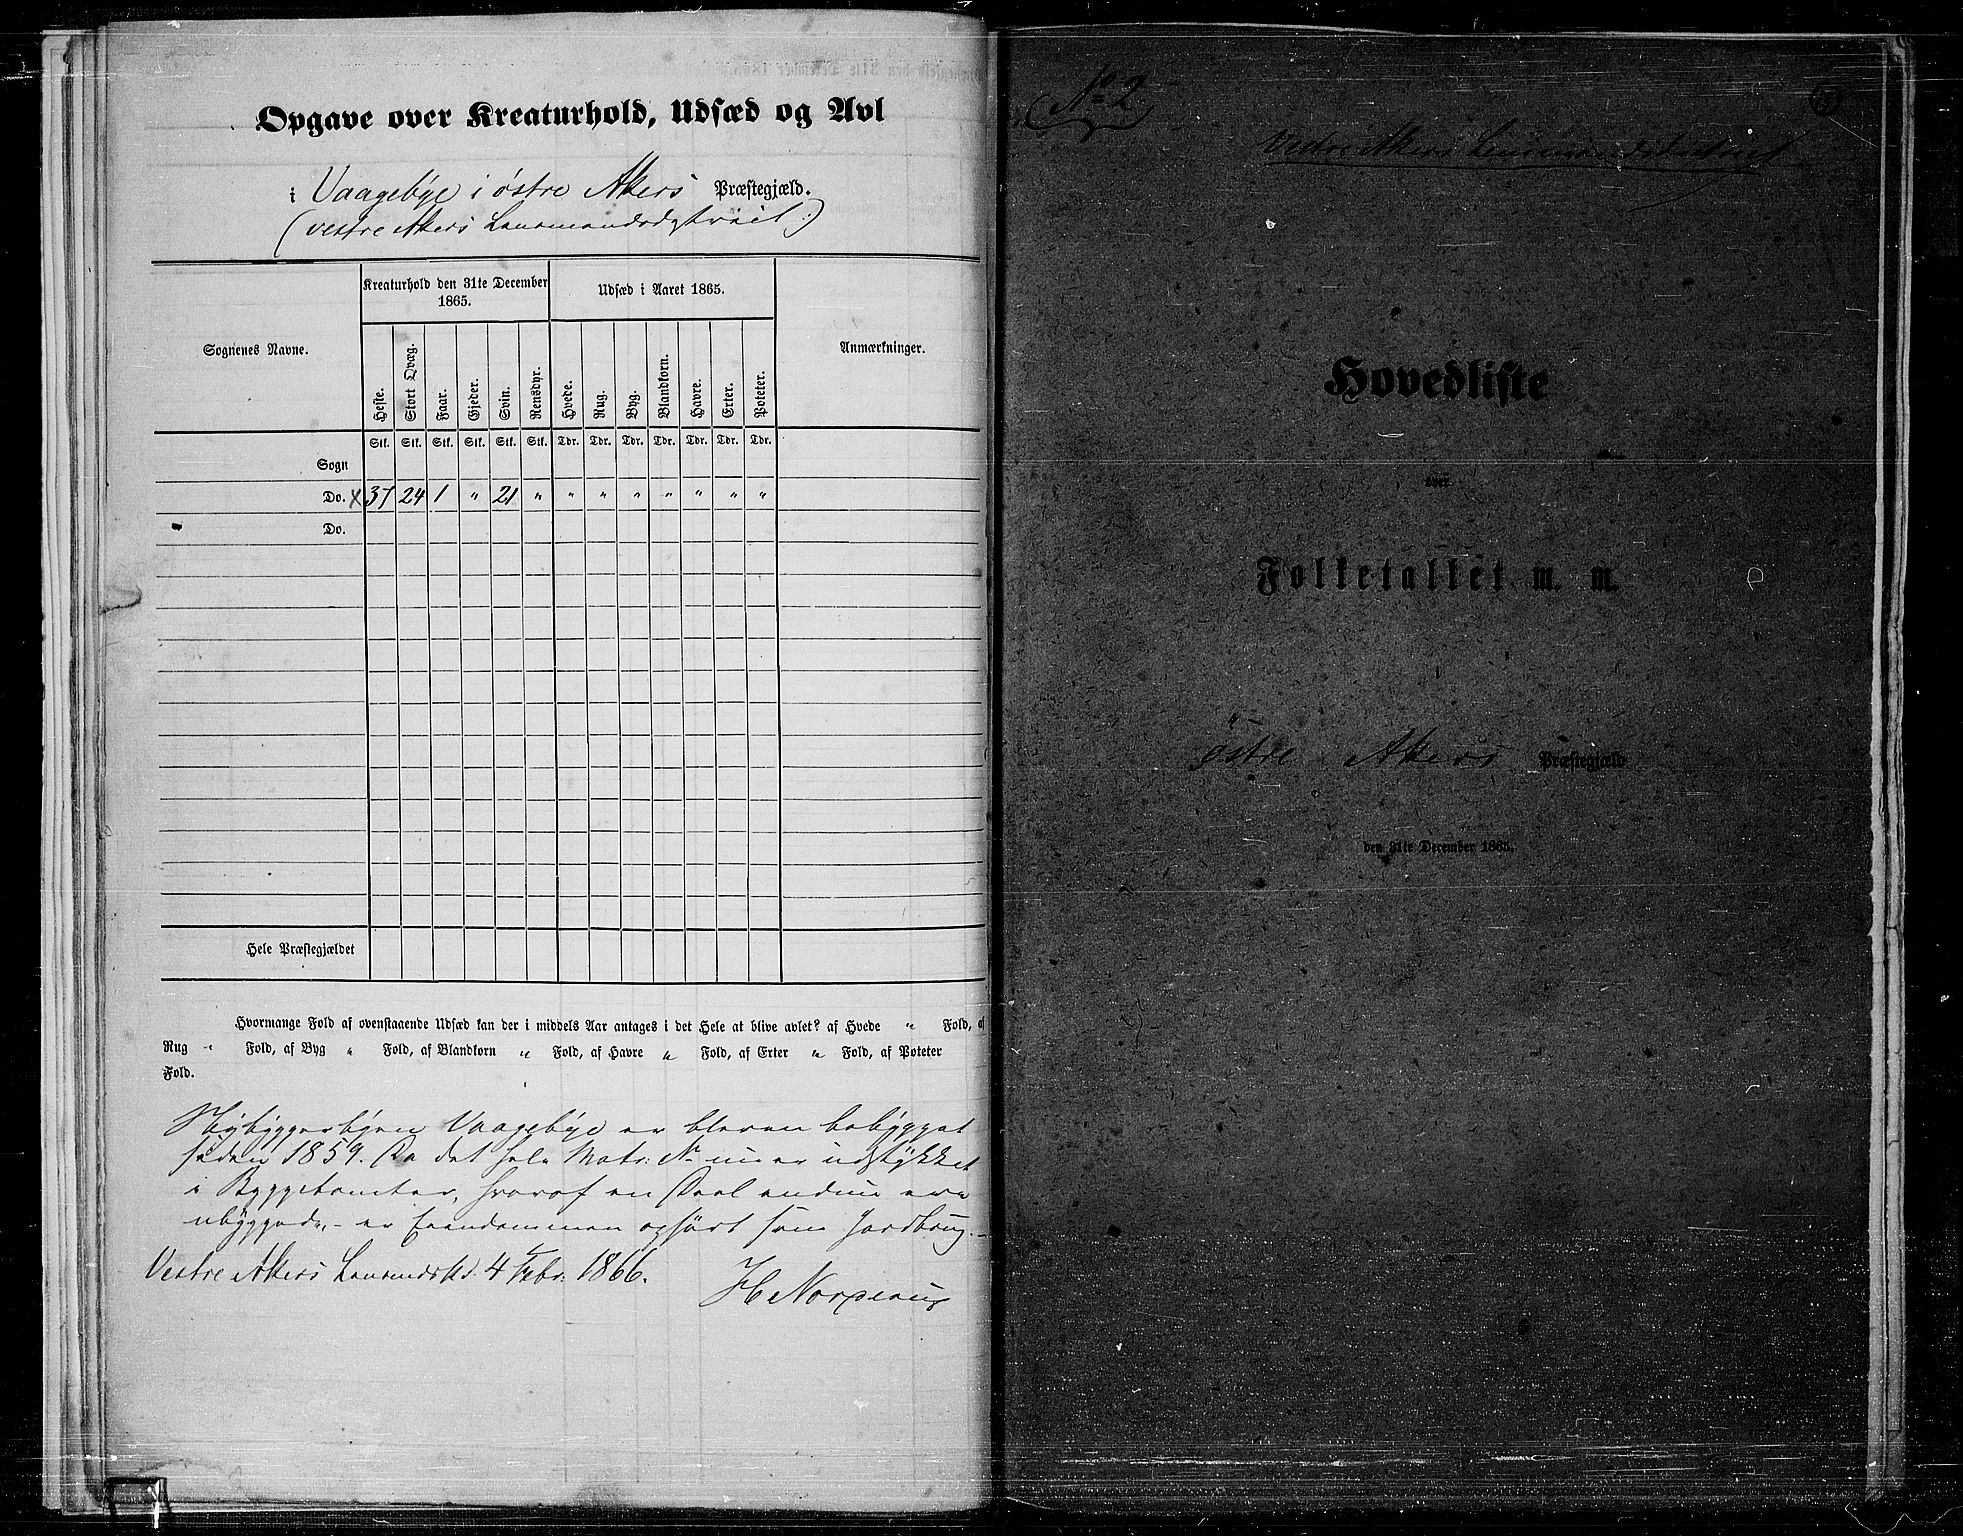 Opgave over Kreaturhold, Udsæd og Avl
i Vaagebÿe i østre Akers Præstegjæld.
(vestre Akers Lensmandsdistrict.)
Sognenes Navne.
Kreaturhold den 31te December 1865.
Udsæd i Aaret 1865.
Anmærkninger.
Heste. Stort Qvæg. Faar. Gjeder. Svin. Rensdyr. Hvede. Rug. Byg. Blandkorn. Havre. Erter. Poteter.
Stk. Stk. Stk. Stk. Stk. Stk. Tdr. Tdr. Tdr. Tdr. Tdr. Tdr. Tdr.
Sogn
Do. x 37 24 1 " 21 " " " " " " " "
Do.
Hele Præstegjældet
Hvormange Fold af ovenstaaende Udsæd kan der i middels Aar antages i det Hele at blive avlet? af Hvede " Fold, af
Rug " Fold, af Byg " Fold, af Blandkorn " Fold, af Havre " Fold, af Erter " Fold, af Poteter
Fold.
Vaagebÿe er bleven bebÿgget
siden 1859. Da det hele Matr: No nu er udstÿkket
i Byggetomter, hvoraf en Deel endnu ere
ubÿggede, – er Eiendommen ophørt som Jordbrug. –
Vestre Akers 4 Febr. 1866.
No 2
Vestre Akers Lensmandsdistrict
Hovedliste
over
Folketallet m. m.
i
østre Akers Præstegjæld
den 31te December 1865.